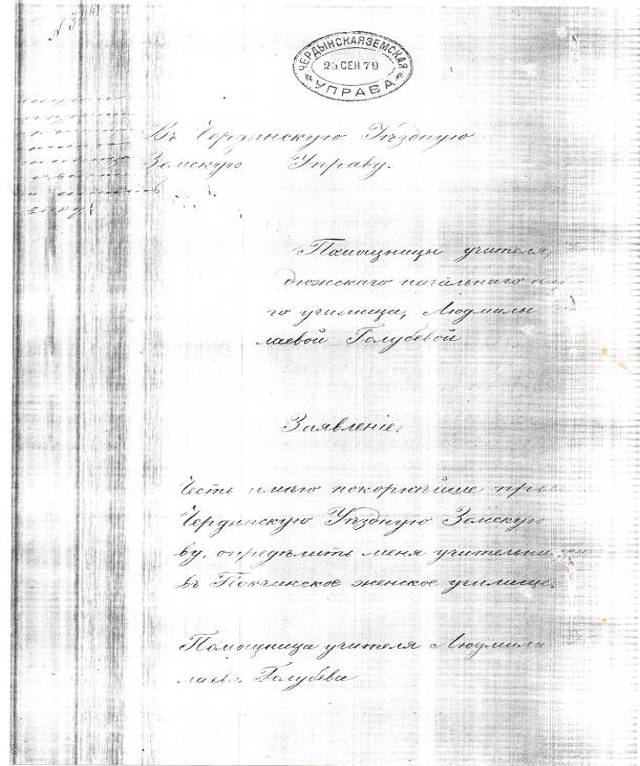 ЧЕРДЫНСКАЯ ЗЕМСКАЯ
25 СЕН. 79
УПРАВА
Въ Чердынскую Уѣздную
Земскую Управу.
Помощницы учителя,
дюжскаго начальнаго
го училища, Людмилы
лаевой Голубевой
Заявленіе.
Честь имѣю покорнѣйше
Чердынскую Уѣздную Земскую
ву, опредѣлить меня
въ Покчинское женское училище.
Помощница учителя Людмила
лаева Голубева